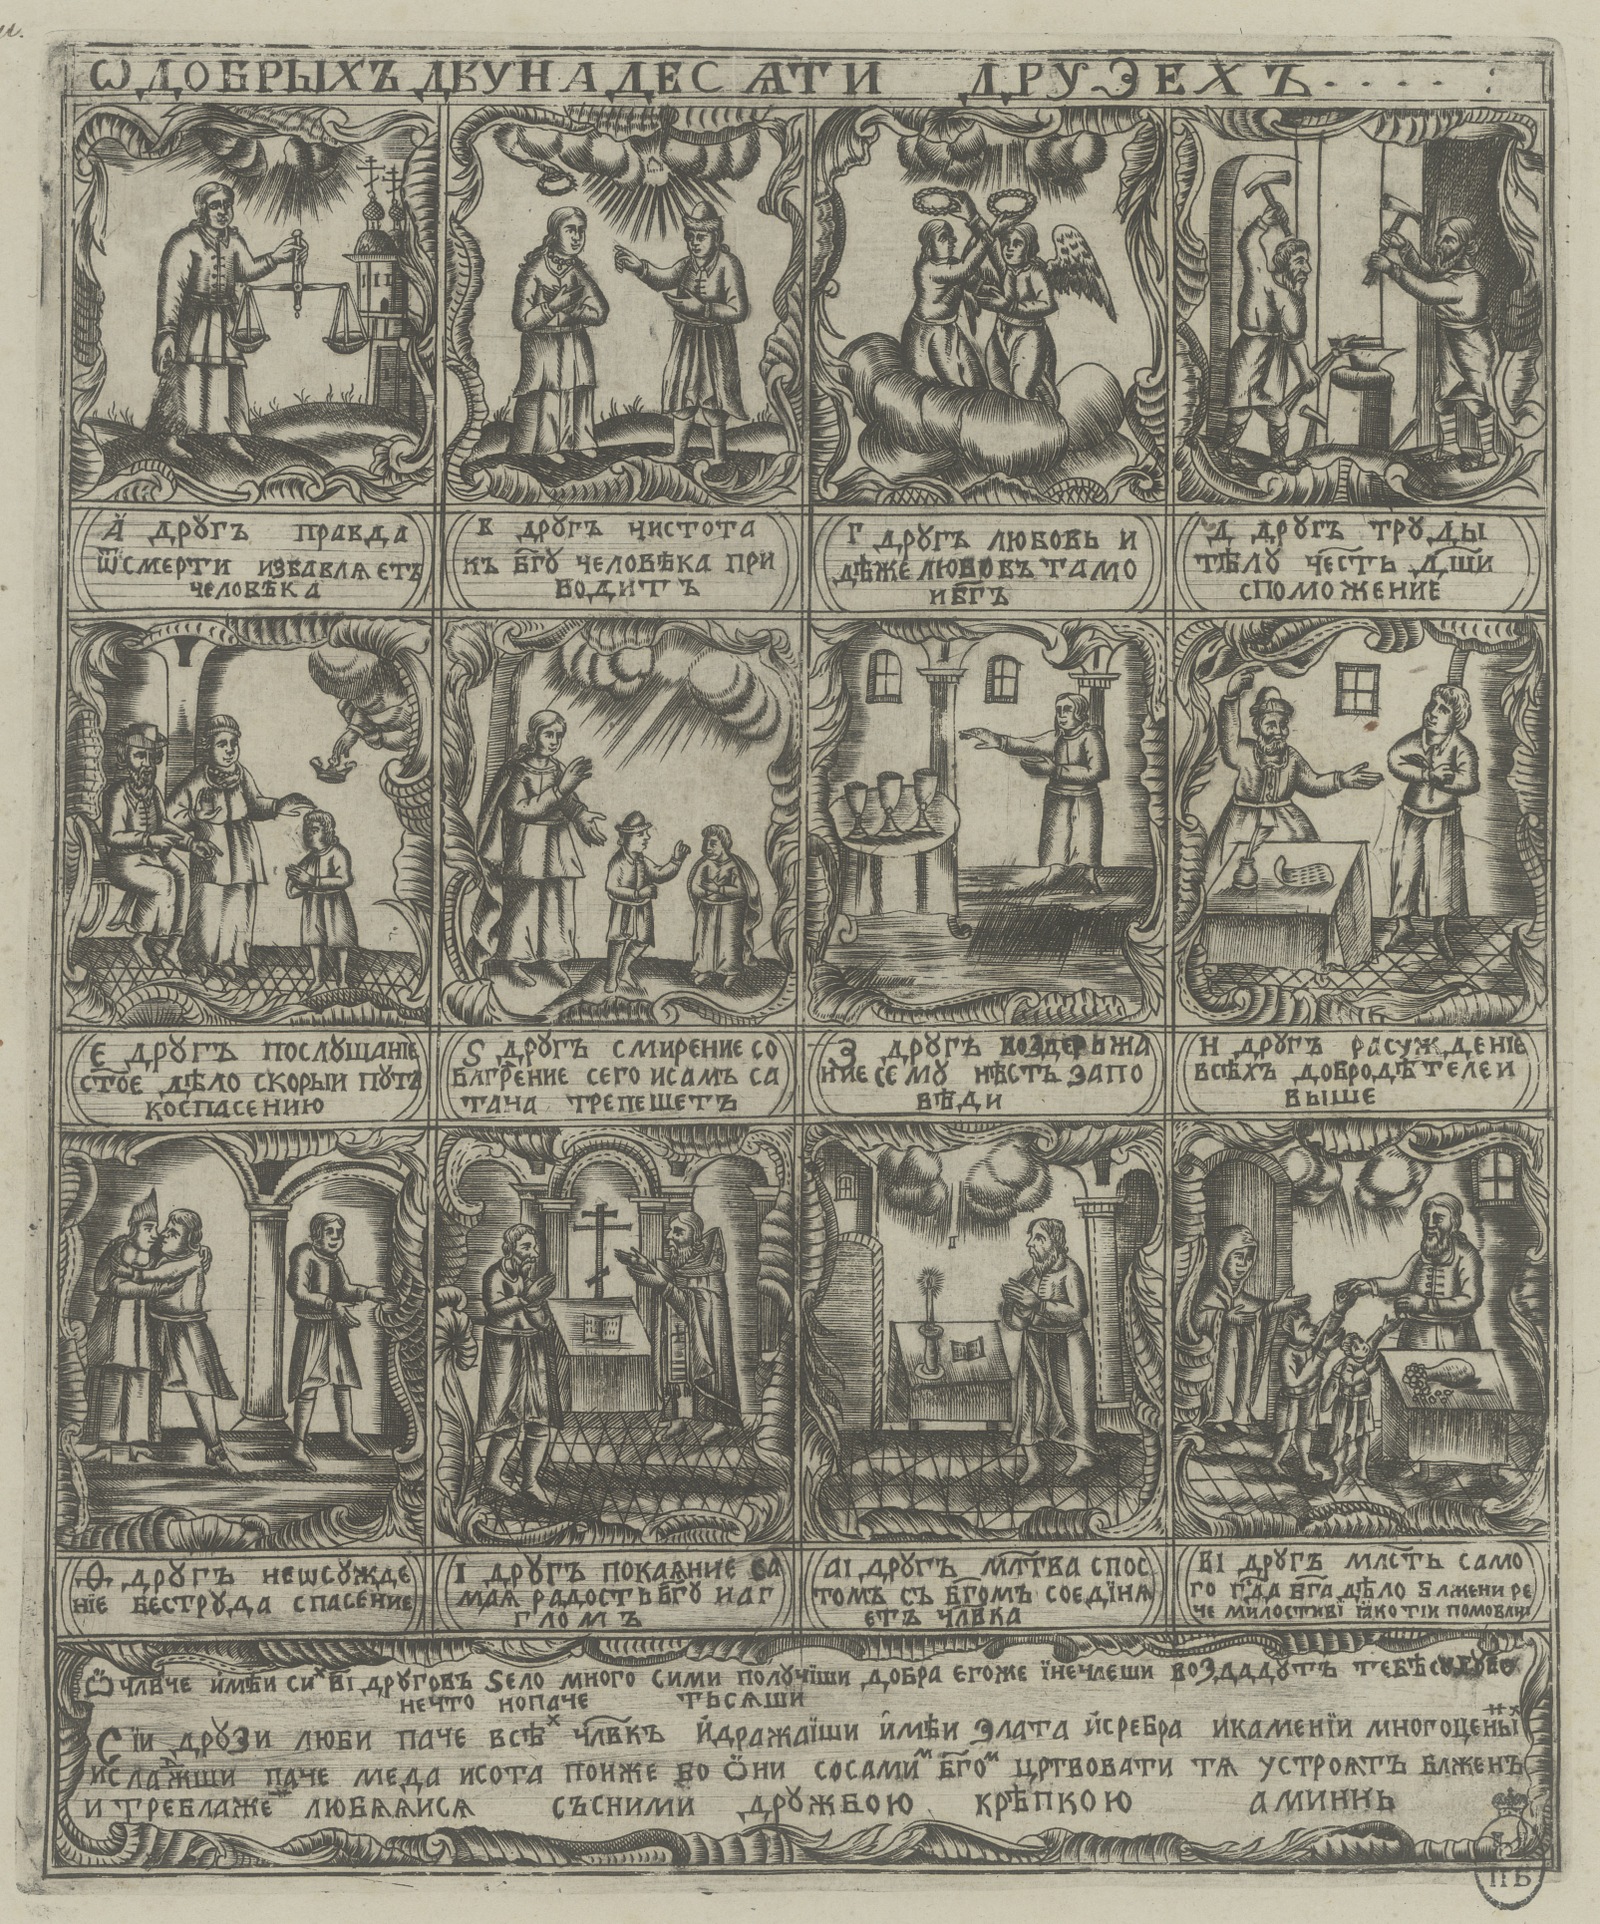 Ѡ ДОБРЫХЪ ДВУНАДЕСѦТИ ДРУЗЕХЪ
А҃ ДРꙊГЪ ПРАВДА
Ѿ СМЕРТИ ИЗБАВЛѦЕТЪ
ЧЕЛОВѢКА
В ДРꙊГЪ ЧИСТОТА
КЪ БГ҃Ꙋ ЧЕЛОВѢКА ПРИ
ВОДИТЪ
Г ДРꙊГЪ ЛЮБОВЬ И
ДѢЖЕ ЛЮБОВЪ ТАМО
И БГ҃Ъ
Д ДРꙊГЪ ТРꙊДЫ
ТѢЛꙊ ЧЕ҃СТЬ ДШ҃И
СПОМОЖЕНИЕ
Е ДРꙊГЪ ПОСЛꙊШАНІЕ
СТ҃ОЕ ДѢЛО СКОРЫИ ПꙊТЬ
КОСПАСЕНИЮ
Ѕ ДРꙊГЪ СМИРЕНИЕ СО
БЛГ҃РЕНИЕ СЕГО И САМЪ СА
ТАНА ТРЕПЕЩЕТЪ
З ДРꙊГЪ ВОЗДЕРЖА
НИЕ СЕМꙊ НѢСТЬ ЗАПО
ВѢДИ
Н ДРꙊГЪ РАСꙊЖДЕНІЕ
ВСѢХЪ ДОБРОДѢТЕЛЕИ
ВЫШЕ
Ѳ ДРꙊГЪ НЕѠСꙊЖДЕ
НІЕ БЕСТРꙊДА СПАСЕНИЕ
І ДРꙊГЪ ПОКАѦНИЕ СА
МАѦ РАДОСТЬ БГ҃Ꙋ И АГ
ГЛОМЪ
АІ ДРꙊГЪ МЛ҃ТВА СПОС
ТОМЪ СЪ БГ҃ОМЪ СОЕДІНѦ
ЕТЪ ЧЛВ҃КА
ВІ ДРꙊГЪ МЛ҃СТЬ САМО
ГО ГД҃А БГ҃А ДѢЛО БЛЖЕНИ РЕ
ЧЕ МИЛОСТИВІ ІАКО ТІИ ПОМОВЛИ
Ѽ ЧЛВ҃ЧЕ ИМѢИ СИХ ВІ ДРꙊГОВЪ ЅЕЛО МНОГО СИМИ ПОЛꙊЧІШИ ДОБРА ЕГОЖЕ ІНЕЧАЕШИ ВОЗДАДꙊТЬ ТЕБѢ
НЕЧТО НОПАЧЕ ТЫСѦШИ
СІИ ДРꙊЗИ ЛЮБИ ПАЧЕ ВСѢХ ЧЛВ҃КЪ ИДРАЖАІШИ ИМѢИ ЗЛАТА ИСРЕБРА ИКАМЕНІИ МНОГОЦЕННЫХ
ИСЛАЖШИ ПАЧЕ МЕДА ИСОТА ПОНЖЕ БО Ѽ҆НИ СОСАМИМ БГ҃ОМ ЦРТВОВАТИ ТѦ УСТРОѦТЪ БЛЖЕНЪ
И ТРЕБЛАЖЕН ЛЮБѦѦИСѦ СЪСНИМИ ДРꙊЖБОЮ КРѢПКОЮ АМИННЬ
ПБ